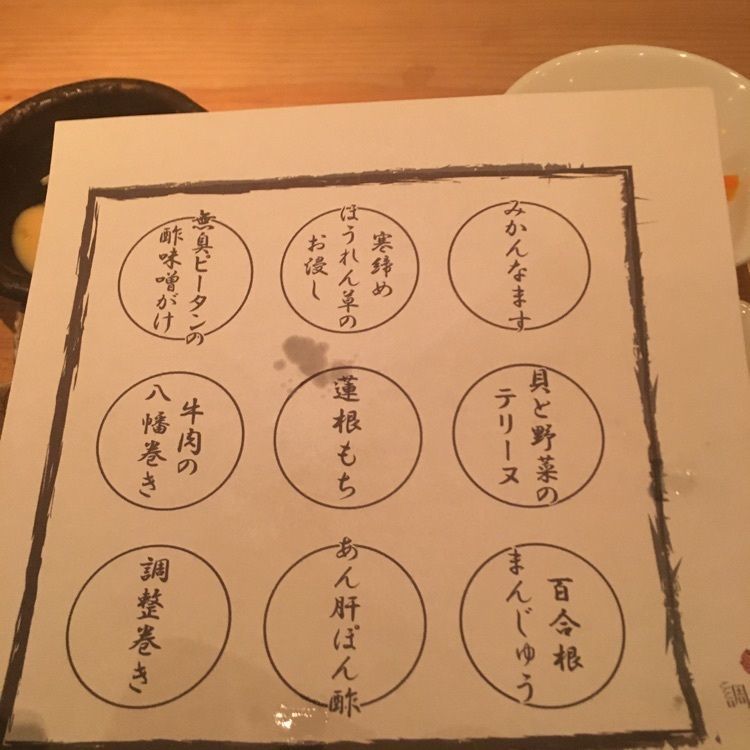 みかんなます
寒締め
ほうれん草の
お浸し
無臭ピータンの
酢味噌がけ
貝と野菜の
テリーヌ
蓮根もち
牛肉の
八幡巻き
百合根
まんじゅう
あん肝ぽん酢
調整巻き
調